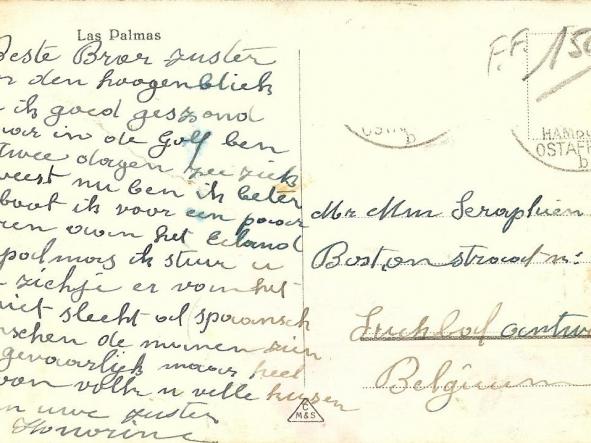 Las Palmas
Beste Broer zuster
den hoogenbliek
ik goed geszond
in de Golf ben
twee dagen zee ziek
weest nu ben ik beter
boot ik voor een paar
aan het Eiland
palmas ik stuur u
zichje er van het
niet slecht al spaansch
menschen de mannen zien
gevaarlick maar heel
volk u velle kussen
uwe zuster
Honorine
F.F. 150
HAMBU
OSTAFR
b
OSTAF
b
Mr Mm Seraphien
Boston straat n:
Luchbal antwe
Belgium
C
M&S